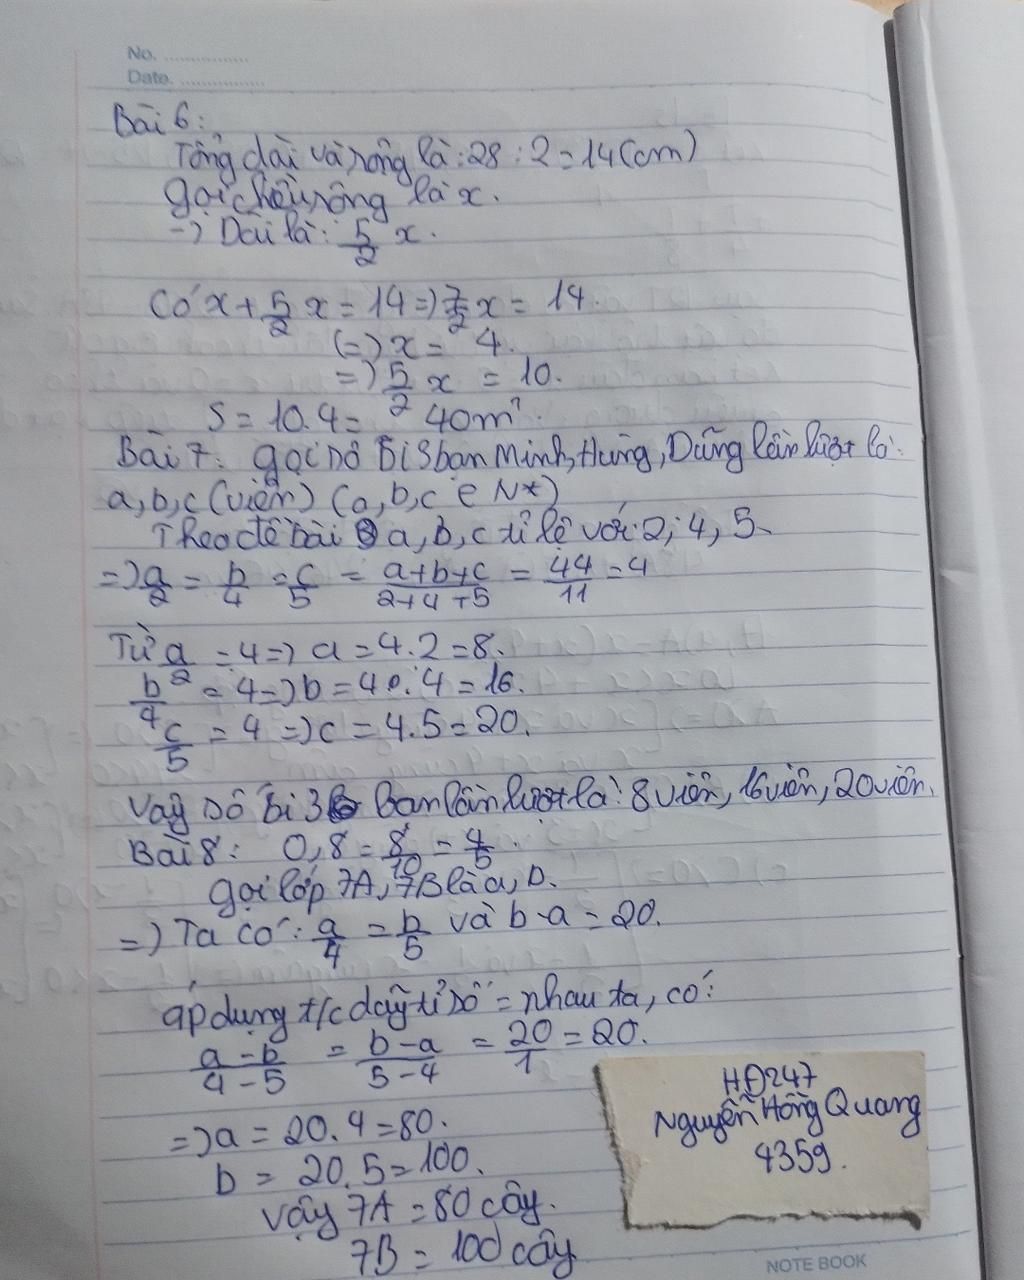 No. ................
Date. ................
Bài 6:
Tổng dài và rộng là: 28 : 2 = 14 (cm)
Gọi chiều rộng là x.
-> Dài là: 5/2 x.
Có x + 5/2 x = 14 => 7/2 x = 14.
(=) x = 4.
=> 5/2 x = 10.
S = 10.4 = 40m².
Bài 7: Gọi số bi 3 bạn Minh, Hùng, Dũng lần lượt là:
a, b, c (viên) (a, b, c ∈ N*)
Theo đề bài a, b, c tỉ lệ với 2; 4, 5.
=> a/2 = b/4 = c/5 = (a+b+c)/(2+4+5) = 44/11 = 4
Từ a/2 = 4 => a = 4.2 = 8.
b/4 = 4 => b = 4.4 = 16.
c/5 = 4 => c = 4.5 = 20.
Vậy số bi 3 bạn lần lượt là: 8 viên, 16 viên, 20 viên.
Bài 8: 0,8 = 8/10 = 4/5.
Gọi lớp 7A, 7B là a, b.
=> Ta có: a/4 = b/5 và b-a = 20.
áp dụng t/c dãy tỉ số = nhau ta, có:
(a-b)/(4-5) = (b-a)/(5-4) = 20/1 = 20.
=> a = 20.4 = 80.
b = 20.5 = 100.
Vậy 7A = 80 cây.
7B = 100 cây
HĐ247
Nguyễn Hồng Quang
4359.
NOTE BOOK